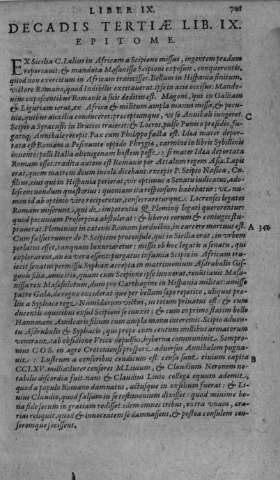 LIBER IX. 701
DECADIS TERTIÆ LIB. IX.
EPITOME.
EX Sicilia C. Lælius in Africam a Scipione missus, ingentem prædam
reportauit: & mandata Masinissæ Scipioni exposuit, conquerentis,
quod non exercitum in Africam traiecisset. Bellum in Hispania finitum,
victore Romano, quod Indibilis excitauerat: ipse in acie occisus: Mandonius
exposcentibus Romanis a suis deditus est. Magoni, qui in Galliam
& Liguriam erat, ex Africa & militum ampla manus missa, & pecunia,
quibus auxilia conduceret: præceptumque, vt se Annibali iungeret.
Scipio a Syracusis in Bruttios traiecit: & Locros, pulso Punico præsidio,
fugatoque Annibale recepit. Pax cum Philippo facta est. Idæa mater deportata
est Romam a Pessinunte oppido Phrygiæ, carmine in libris Sibyllinis
inuento: pelli Italia alienigenam hostem posse, si mater Idæa deportata
Romam esset: tradita autem est Romanis per Attalum regem Asiæ. Lapis
erat, quem matrem deum incolæ dicebant. excepit P. Scipio Nasica, Cn.
filius, eius qui in Hispania perierat, vir optimus a Senatu iudicatus, adolescens
nondum quæstorius: quoniam ita responsum iubebat, vt numen
id ab optimo viro reciperetur, consecrareturque. Locrenses legatos
Romam miserunt, qui de
quod pecuniam Proserpinæ abstulerat: & liberos eorum & coniuges stuprauerat.
Pleminius in catenis Romam perductus, in carcere mortuus est.
Cum falsus rumor de P. Scipione proconsule, qui in Sicilia erat, in vrbem
perlatus esset, tanquam luxuriaretur: missis ob hoc legatis a senatu, qui
explorarent, an ea vera essent: purgatus infamia Scipio in Africam traiecit
senatus permissu. Syphax accepta in matrimonium Asdrubalis Gisgonis
filia, amicitia, quam cum Scipione ipse iunxerat, renuntiauit. Masinissa
rex Massyliorum, dum pro Carthaginiensibus in Hispania militat: amisso
patre Gala, de regno exciderat: quo per bellum sæpe repetito, aliquot præliis
a Syphace rege, Numidarum victus, in totum priuatus est: & cum
ducentis equitibus exul Scipioni se iunxit: & cum eo primo statim bello
Hannonem Amilcaris filium cum ampla manu interemit. Scipio aduentu
Asdrubalis & Syphacis, qui prope cum centum millibus armatorum
venerant, ab obsidione Vticæ depulsus, hyberna communiuit. Sempronius
COS. in agro Crotoniensi prospere aduersus Annibalem pugnauit.
Lustrum a censoribus conditum est. censa sunt. ciuium capita
CCXIV. millia: inter censores M. Liuium, & Claudium Neronem notabilis
discordia fuit: nam & Claudius Liuio collegæ equum ademit,
quod a populo Romano damnatus, actusque in exsilium fuerat: & Liuius
Claudio, quod falsum in se testimonium dixisset: & quod minime bona
fide secum in gratiam redisset. idem omnes tribus, extra vnam, ærarias
reliquit, quod & innocentem se damnassent, & postea consulem censoremque
fecissent.
C
A
B